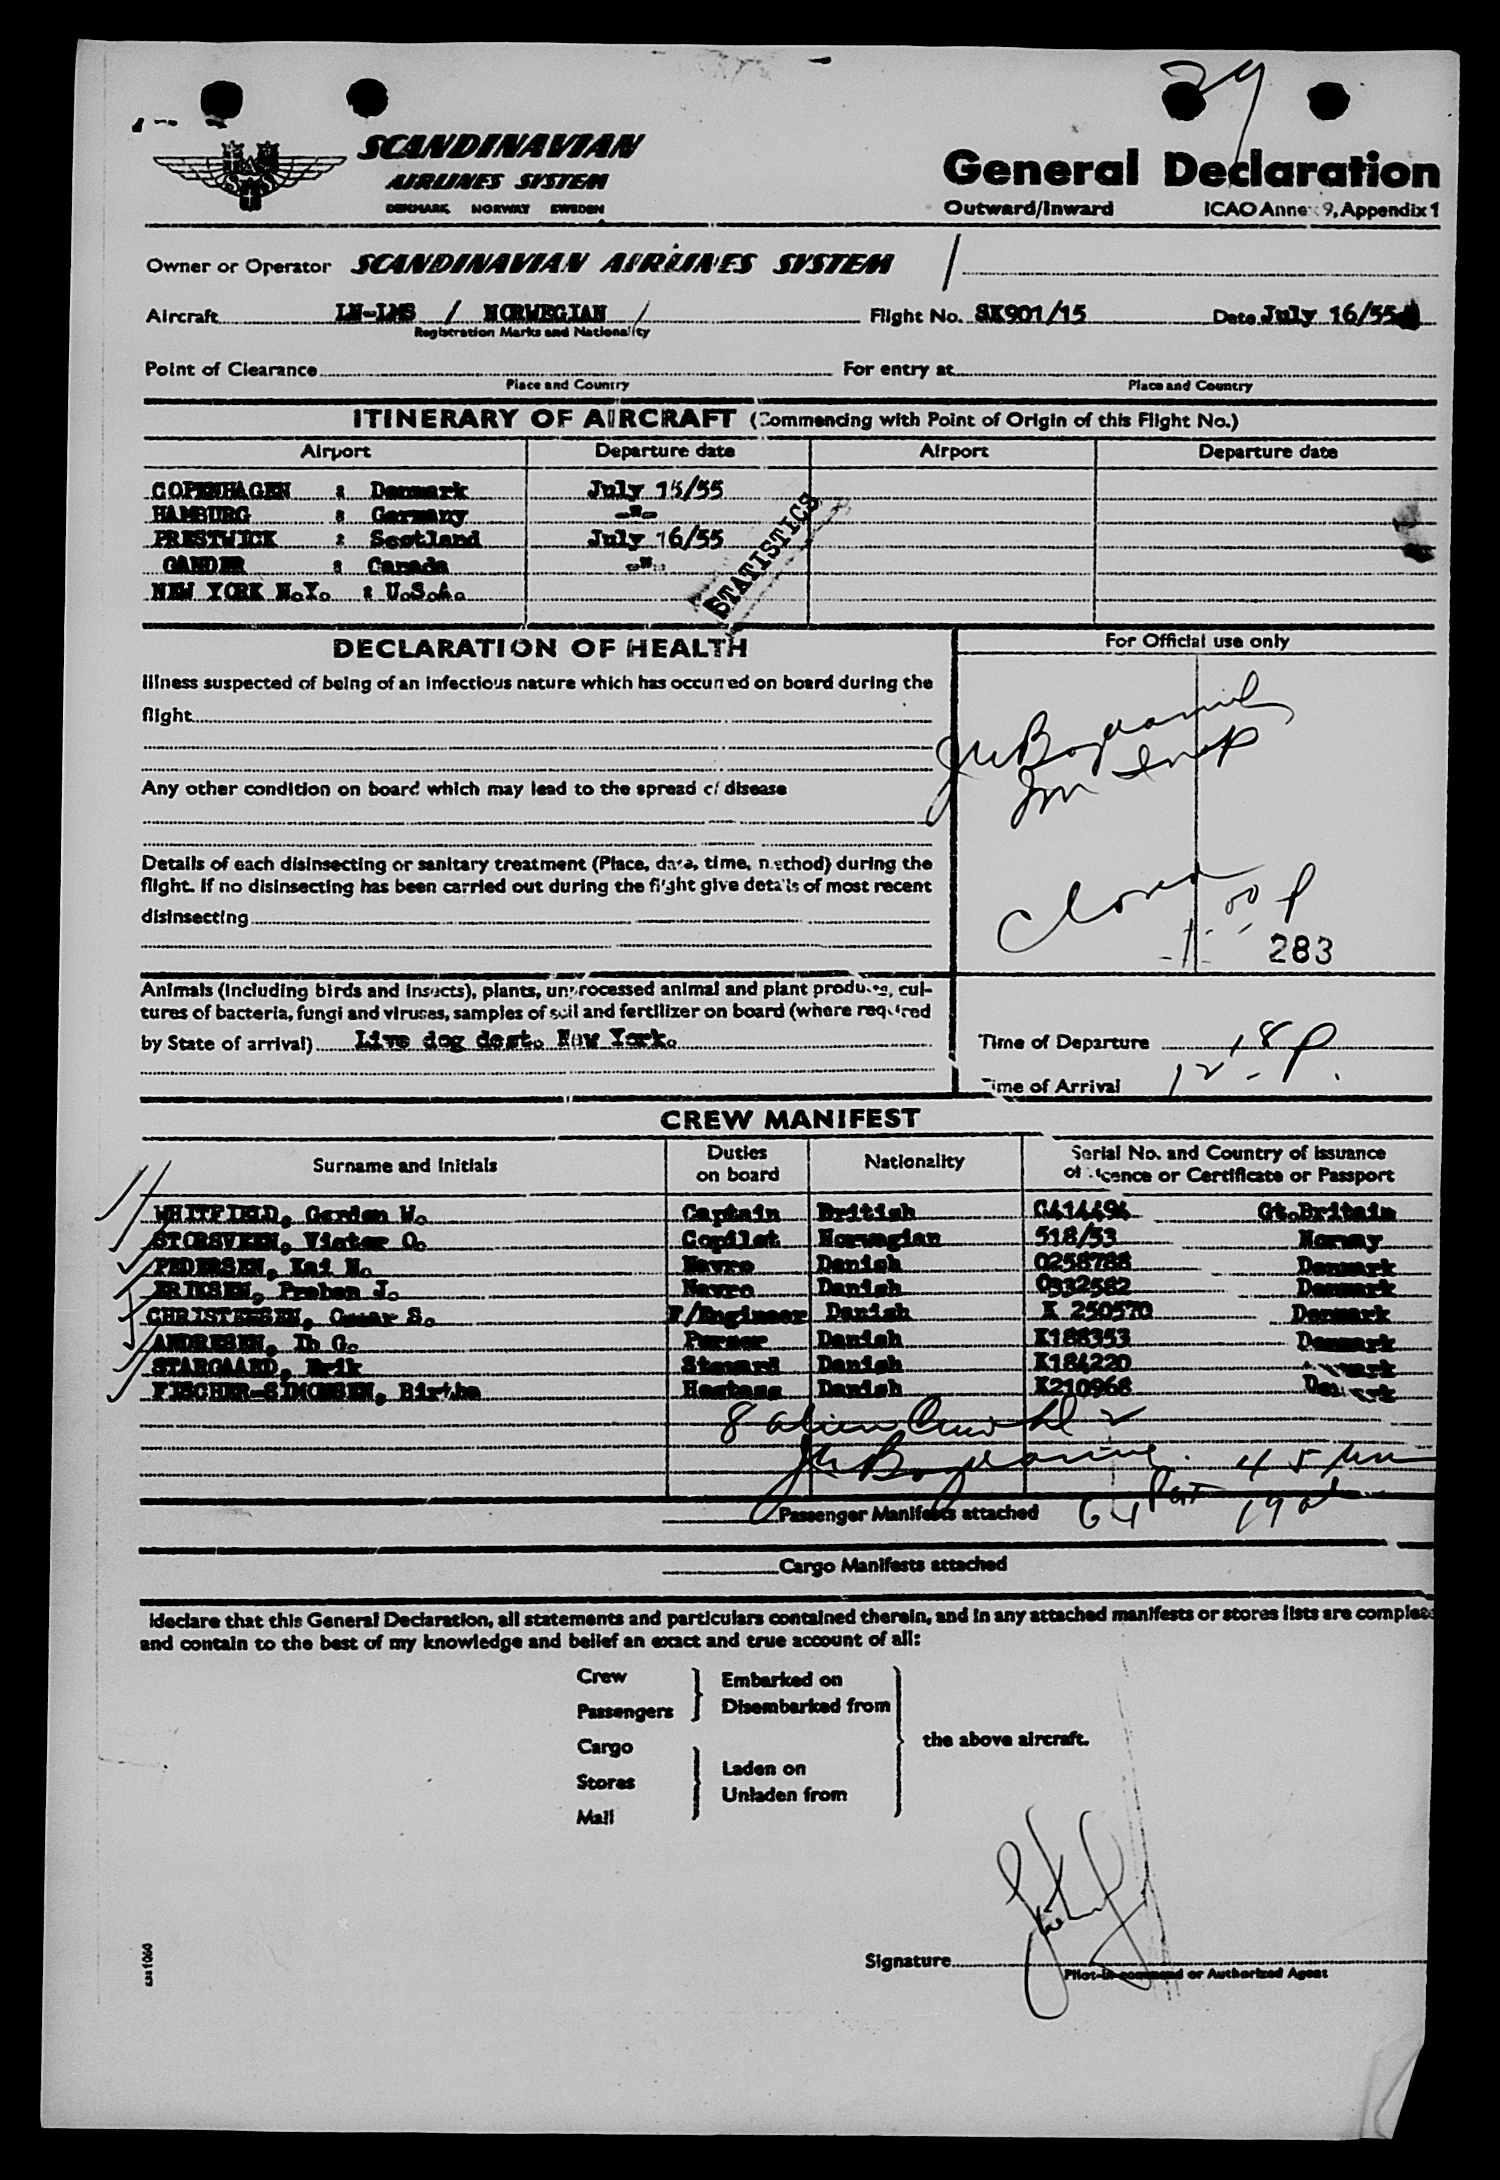 24
SCANDINAVIAN
AIRLINES SYSTEM
DENMARK NORWAY SWEDEN
General Declaration
Outward/Inward ICAO Annex 9, Appendix 1
Owner or Operator SCANDINAVIAN AIRLINES SYSTEM /
Aircraft LN-LMS / NORWEGIAN / Flight No. SK901/15 Date July 16/55
Registration Marks and Nationality
Point of Clearance For entry at
Place and Country Place and Country
ITINERARY OF AIRCRAFT (Commencing with Point of Origin of this Flight No.)
Airport Departure date Airport Departure date
COPENHAGEN : Denmark July 15/55
HAMBURG : Germany -"-
PRESTWICK : Scotland July 16/55
GANDER : Canada -"-
NEW YORK N.Y. : U.S.A.
STATISTICS
DECLARATION OF HEALTH
For Official use only
Illness suspected of being of an infectious nature which has occurred on board during the
flight
Any other condition on board which may lead to the spread of disease
Details of each disinsecting or sanitary treatment (Place, date, time, method) during the
flight. If no disinsecting has been carried out during the flight give details of most recent
disinsecting
Imm Insp
Closed
1:00 P
283
Animals (including birds and insects), plants, unprocessed animal and plant produce, cul-
tures of bacteria, fungi and viruses, samples of soil and fertilizer on board (where required
by State of arrival) Live dog dest. New York.
Time of Departure
Time of Arrival
CREW MANIFEST
Surname and Initials Duties on board Nationality Serial No. and Country of issuance of Licence or Certificate or Passport
WHITFIELD, Gordon W. Captain British C414494 Gt.Britain
STORSVEEN, Victor O. Copilot Norwegian 518/53 Norway
PEDERSEN, Kai N. Navro Danish 0258788 Denmark
ERIKSEN, Preben J. Navro Danish 0332582 Denmark
CHRISTENSEN, Gunnar S. F/Engineer Danish K 250570 Denmark
ANDRESEN, Ib G. Purser Danish K188353 Denmark
STARGAARD, Erik Steward Danish K184220 Denmark
FISCHER-SIMONSEN, Birthe Hostess Danish K210968 Denmark
8 alien Crew
45
Passenger Manifests attached 64 19
Cargo Manifests attached
I declare that this General Declaration, all statements and particulars contained therein, and in any attached manifests or stores lists are complete
and contain to the best of my knowledge and belief an exact and true account of all:
Crew
Passengers
Embarked on
Disembarked from
Cargo
Stores
Mail
Laden on
Unladen from
the above aircraft.
Signature
Pilot-in-command or Authorized Agent